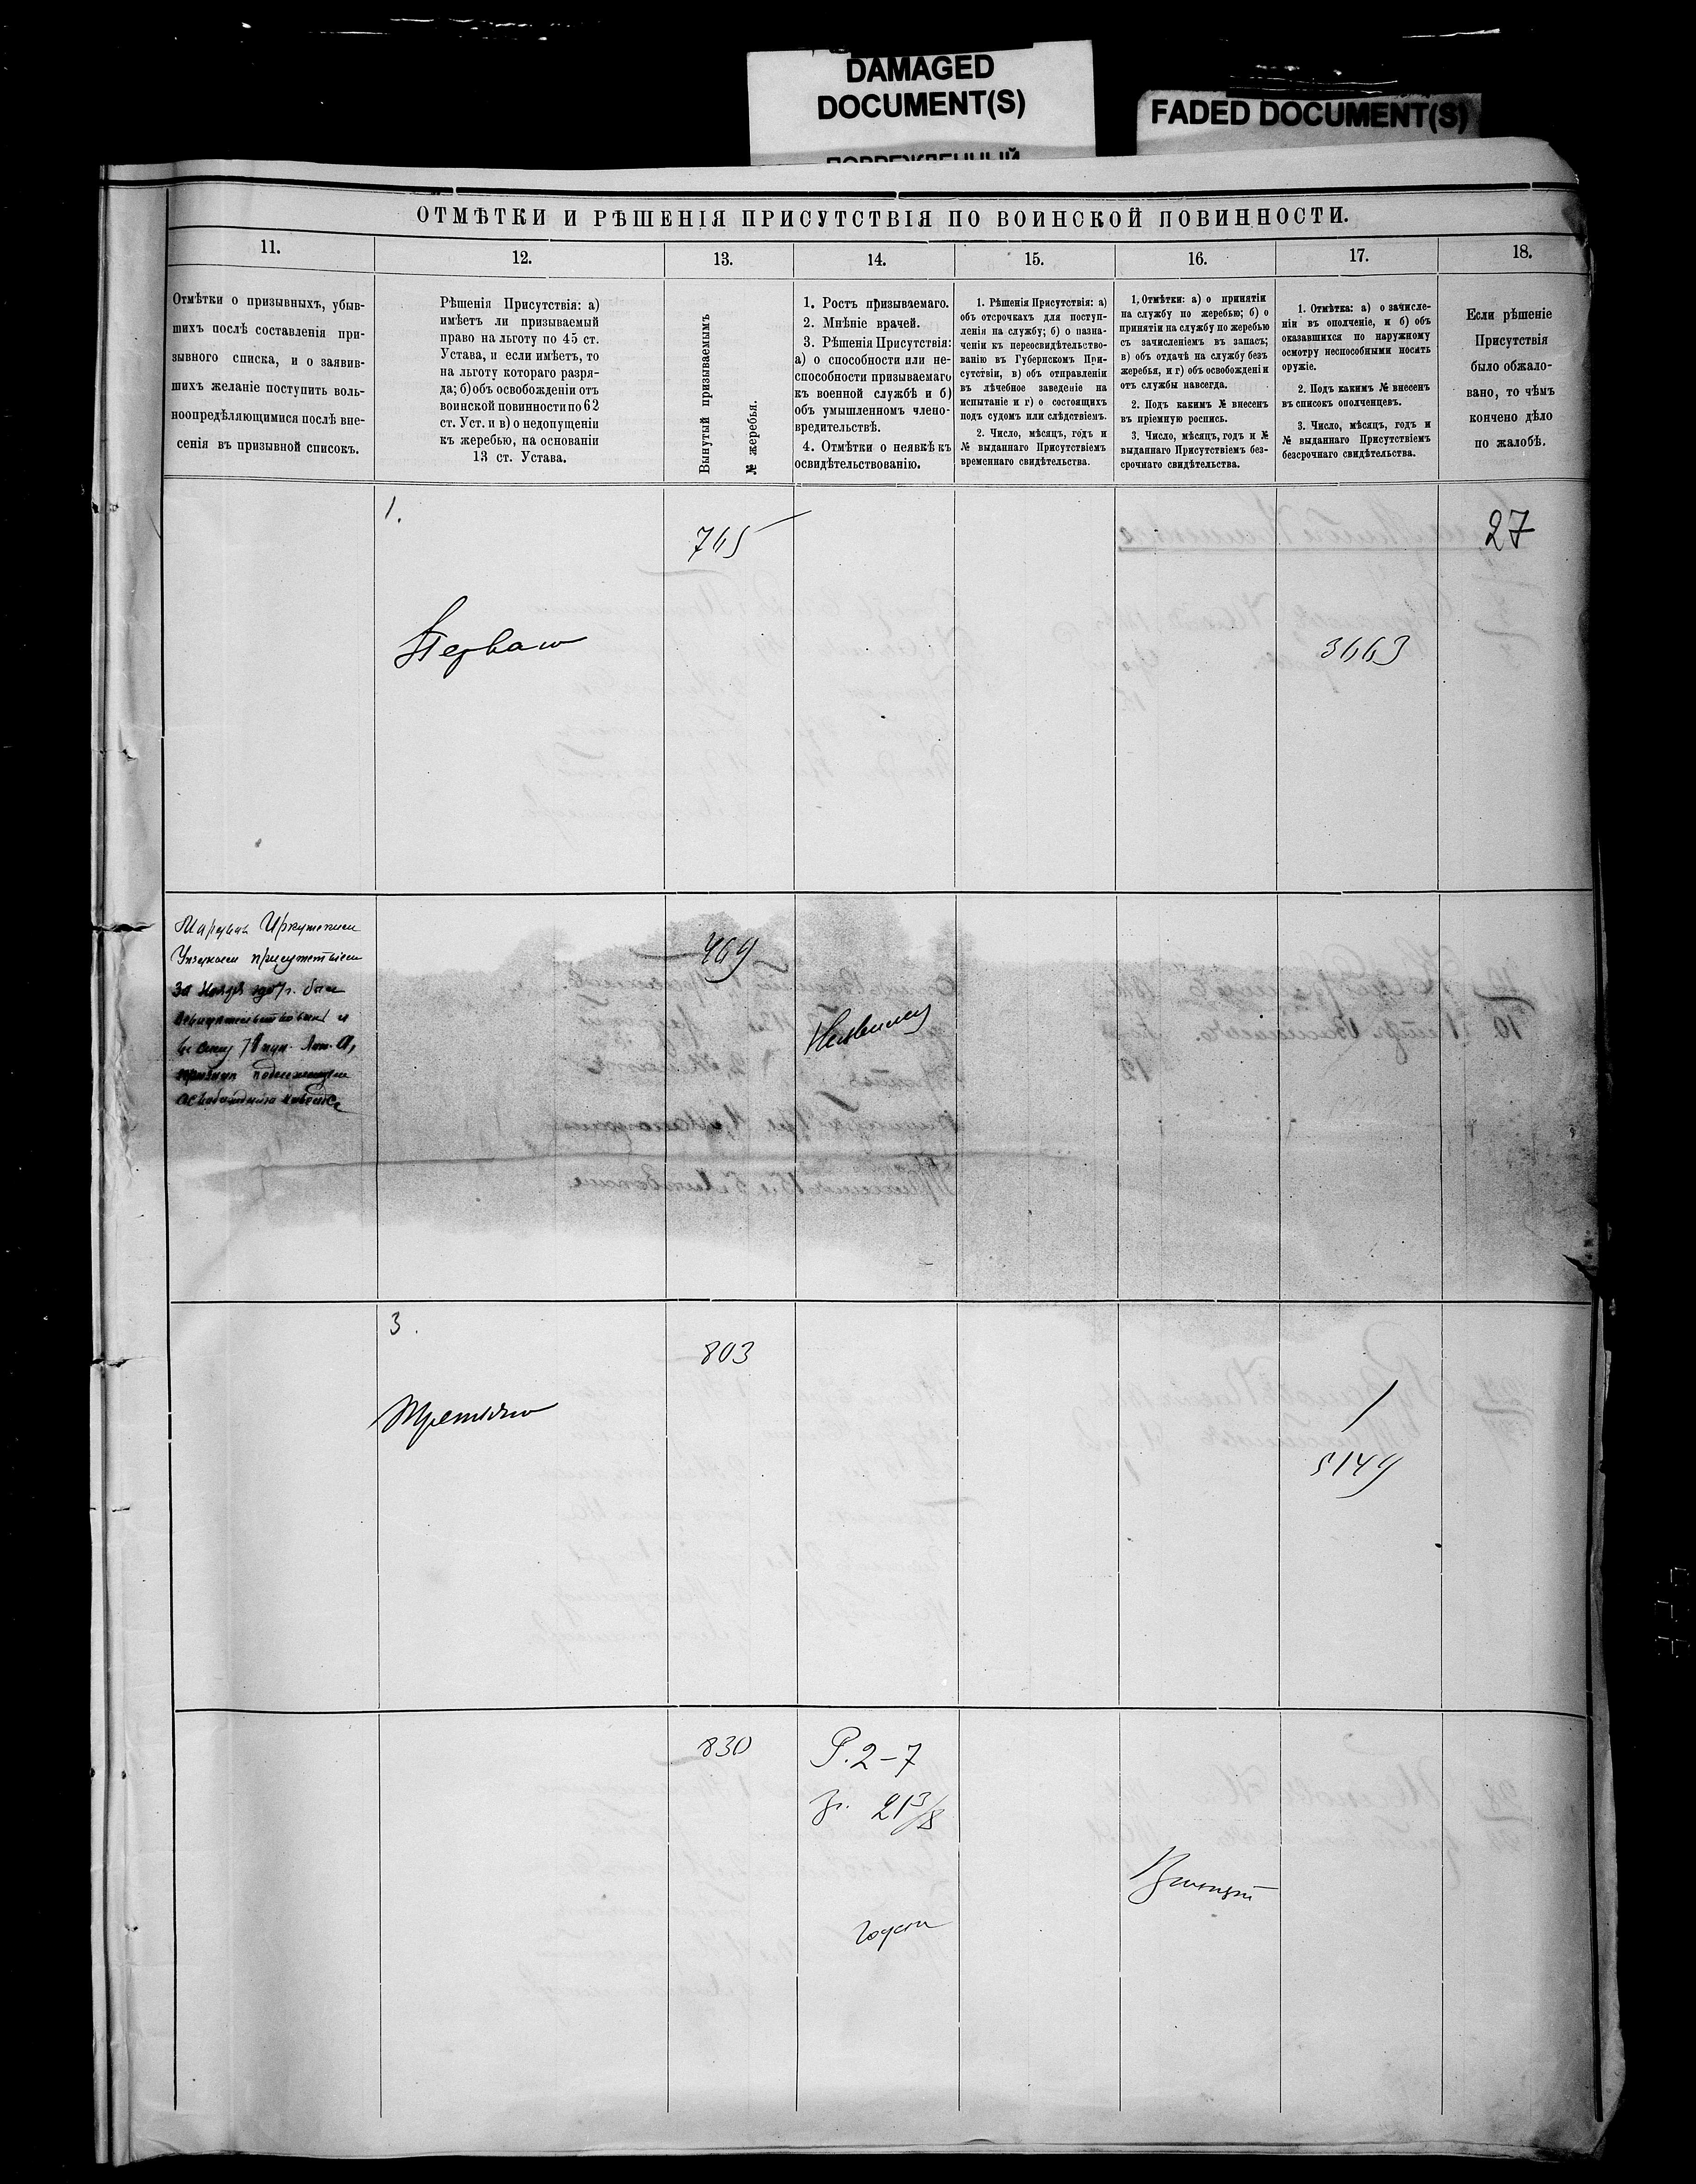 DAMAGED
DOCUMENT(S)
ПОВРЕЖДЕННЫЙ
FADED DOCUMENT(S)
ОТМѢТКИ И РѢШЕНІЯ ПРИСУТСТВІЯ ПО ВОИНСКОЙ ПОВИННОСТИ.
11.
12.
13.
14.
15.
16.
17.
18.
Отмѣтки о призывныхъ, убыв-
шихъ послѣ составленія при-
зывного списка, и о заявив-
шихъ желаніе поступить воль-
ноопредѣляющимися послѣ вне-
сенія въ призывной списокъ.
Рѣшенія Присутствія: а)
имѣетъ ли призываемый
право на льготу по 45 ст.
Устава, и если имѣетъ, то
на льготу котораго разря-
да; б) объ освобожденіи отъ
воинской повинности по 62
ст. Уст. и в) о недопущеніи
къ жеребью, на основаніи
13 ст. Устава.
Вынутый призываемымъ
№ жеребья.
1. Ростъ призываемаго.
2. Мнѣніе врачей.
3. Рѣшенія Присутствія:
а) о способности или не-
способности призываемаго
къ военной службѣ и б)
объ умышленномъ члено-
вредительствѣ.
4. Отмѣтки о неявкѣ къ
освидѣтельствованію.
1. Рѣшенія Присутствія: а)
объ отсрочкахъ для поступ-
ленія на службу; б) о назна-
ченіи къ переосвидѣтельство-
ванію въ Губернскомъ При-
сутствіи, в) объ отправленіи
въ лѣчебное заведеніе на
испытаніе и г) о состоящихъ
подъ судомъ или слѣдствіемъ.
2. Число, мѣсяцъ, годъ и
№ выданнаго Присутствіемъ
временнаго свидѣтельства.
1, Отмѣтки: а) о принятіи
на службу по жеребью; б) о
принятіи на службу по жеребью
съ зачисленіемъ въ запасъ;
в) объ отдачѣ на службу безъ
жеребья, и г) объ освобожденіи
отъ службы навсегда.
2. Подъ какимъ № внесенъ
въ пріемную роспись.
3. Число, мѣсяцъ, годъ и №
выданнаго Присутствіемъ без-
срочнаго свидѣтельства.
1. Отмѣтка: а) о зачисле-
ніи въ ополченіе, и б) объ
оказавшихся по наружному
осмотру неспособными носить
оружіе.
2. Подъ какимъ № внесенъ
въ списокъ ополченцевъ.
3. Число, мѣсяцъ, годъ и
№ выданнаго Присутствіемъ
безсрочнаго свидѣтельства.
Если рѣшеніе
Присутствія
было обжало-
вано, то чѣмъ
кончено дѣло
по жалобѣ.
1.
765
27
Первою
3663
Иркутским
Уездным присутствием
30 Ноября 1907 г. был
469
3.
803
Третью
1
5149
830
Р. 2–7
Гр. 21 3/8
годен